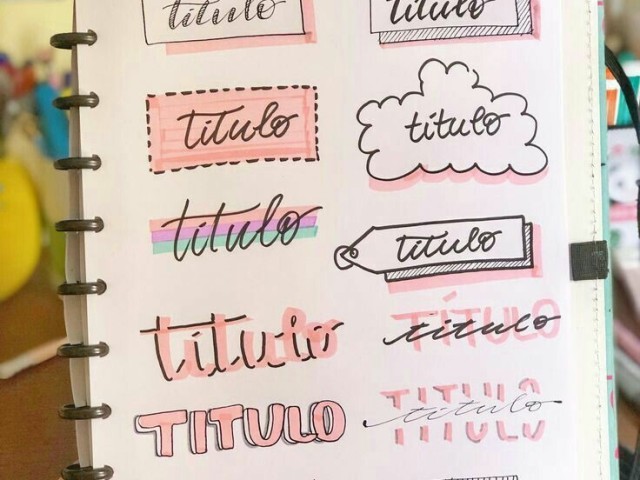 título título
título título
título título
título TÍTULO título
TITULO TITULO título